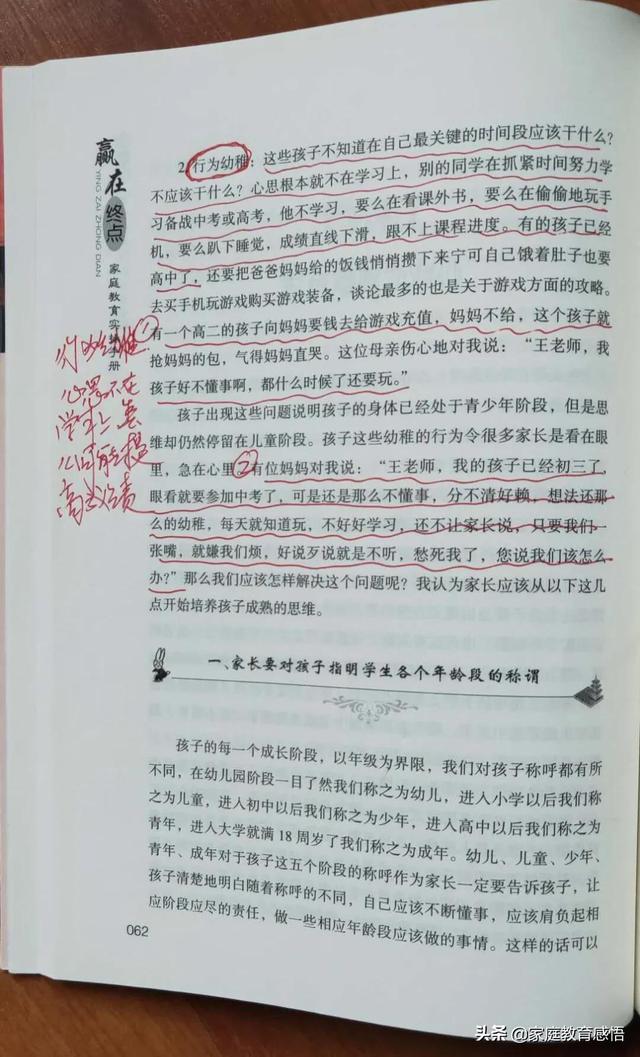 赢在终点
YING ZAI ZHONG DIAN
家庭教育实 册
2.行为幼稚：这些孩子不知道在自己最关键的时间段应该干什么？
不应该干什么？心思根本就不在学习上，别的同学在抓紧时间努力学
习备战中考或高考，他不学习，要么在看课外书，要么在偷偷地玩手
机，要么趴下睡觉，成绩直线下滑，跟不上课程进度。有的孩子已经
高中了，还要把爸爸妈妈给的饭钱悄悄攒下来宁可自己饿着肚子也要
去买手机玩游戏购买游戏装备，谈论最多的也是关于游戏方面的攻略。
有一个高二的孩子向妈妈要钱去给游戏充值，妈妈不给，这个孩子就
抢妈妈的包，气得妈妈直哭。这位母亲伤心地对我说：“王老师，我
孩子好不懂事啊，都什么时候了还要玩。”
孩子出现这些问题说明孩子的身体已经处于青少年阶段，但是思
维却仍然停留在儿童阶段。孩子这些幼稚的行为令很多家长是看在眼
里，急在心里②有位妈妈对我说：“王老师，我的孩子已经初三了，
眼看就要参加中考了，可是还是那么不懂事，分不清好赖，想法还那
么的幼稚，每天就知道玩，不好好学习，还不让家长说，只要我们一
张嘴，就嫌我们烦，好说歹说就是不听，愁死我了，您说我们该怎么
办？”那么我们应该怎样解决这个问题呢？我认为家长应该从以下这几
点开始培养孩子成熟的思维。
行为幼稚①
心思不在
学习上怎
么可能提
高成绩
一、家长要对孩子指明学生各个年龄段的称谓
孩子的每一个成长阶段，以年级为界限，我们对孩子称呼都有所
不同，在幼儿园阶段一目了然我们称之为幼儿，进入小学以后我们称
之为儿童，进入初中以后我们称之为少年，进入高中以后我们称之为
青年，进入大学就满 18 周岁了我们称之为成年。幼儿、儿童、少年、
青年、成年对于孩子这五个阶段的称呼作为家长一定要告诉孩子，让
孩子清楚地明白随着称呼的不同，自己应该不断懂事，应该肩负起相
应阶段应尽的责任，做一些相应年龄段应该做的事情。这样的话可以
062
头条 @家庭教育感悟